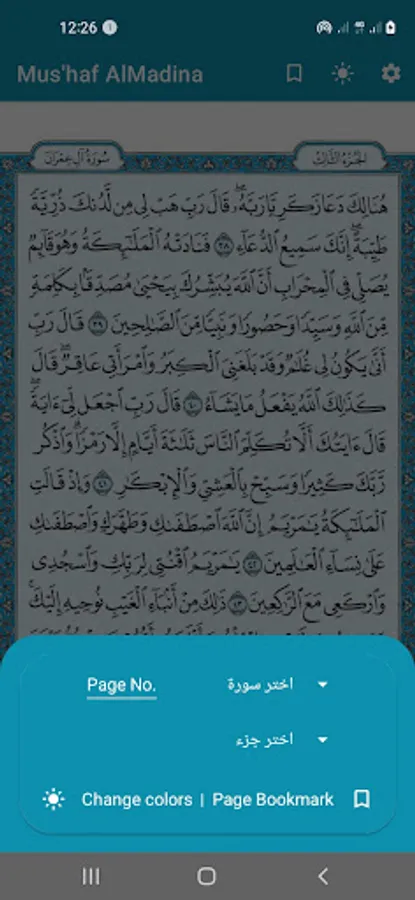 12:26
Mus'haf AlMadina
سُورَةُ آلِ عِمْرَانَ
الجُزْءُ الثَّالِثُ
هُنَالِكَ دَعَا زَكَرِيَّا رَبَّهُۥۖ قَالَ رَبِّ هَبْ لِى مِن لَّدُنكَ ذُرِّيَّةً
طَيِّبَةًۖ إِنَّكَ سَمِيعُ ٱلدُّعَآءِ ٣٨ فَنَادَتْهُ ٱلْمَلَٰٓئِكَةُ وَهُوَ قَآئِمٌ
يُصَلِّى فِى ٱلْمِحْرَابِ أَنَّ ٱللَّهَ يُبَشِّرُكَ بِيَحْيَىٰ مُصَدِّقًۢا بِكَلِمَةٍ
مِّنَ ٱللَّهِ وَسَيِّدًا وَحَصُورًا وَنَبِيًّا مِّنَ ٱلصَّٰلِحِينَ ٣٩ قَالَ رَبِّ
أَنَّىٰ يَكُونُ لِى غُلَٰمٌ وَقَدْ بَلَغَنِىَ ٱلْكِبَرُ وَٱمْرَأَتِى عَاقِرٌۖ قَالَ
كَذَٰلِكَ ٱللَّهُ يَفْعَلُ مَا يَشَآءُ ٤٠ قَالَ رَبِّ ٱجْعَل لِّىٓ ءَايَةًۖ
قَالَ ءَايَتُكَ أَلَّا تُكَلِّمَ ٱلنَّاسَ ثَلَٰثَةَ أَيَّامٍ إِلَّا رَمْزًاۗ وَٱذْكُر
رَّبَّكَ كَثِيرًا وَسَبِّحْ بِٱلْعَشِىِّ وَٱلْإِبْكَٰرِ ٤١ وَإِذْ قَالَتِ
ٱلْمَلَٰٓئِكَةُ يَٰمَرْيَمُ إِنَّ ٱللَّهَ ٱصْطَفَىٰكِ وَطَهَّرَكِ وَٱصْطَفَىٰكِ
عَلَىٰ نِسَآءِ ٱلْعَٰلَمِينَ ٤٢ يَٰمَرْيَمُ ٱقْنُتِى لِرَبِّكِ وَٱسْجُدِى
وَٱرْكَعِى مَعَ ٱلرَّٰكِعِينَ ٤٣ ذَٰلِكَ مِنْ أَنۢبَآءِ ٱلْغَيْبِ نُوحِيهِ إِلَيْكَۚ
Page No.
اختر سورة
اختر جزء
Change colors | Page Bookmark